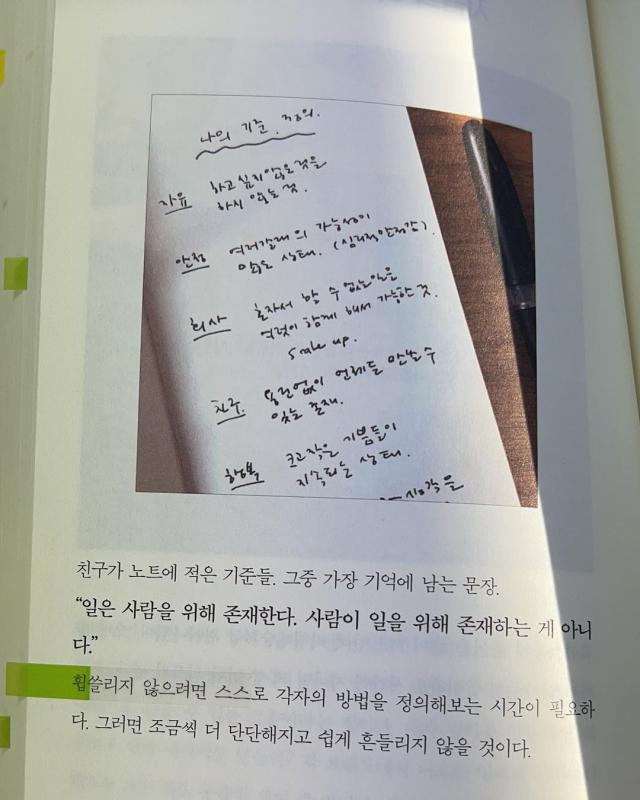 나의 기준, 정의.
자유 하고싶지않은것을
하지 않는 것.
안정 여러갈래의 가능성이
있는 상태. (심리적안정감).
회사 혼자서 할 수 없는일을
여럿이 함께 해서 가능한 것.
scale up.
친구 용건없이 언제든 만날 수
있는 존재.
행복 크고작은 기쁨들이
지속되는 상태.
친구가 노트에 적은 기준들. 그중 가장 기억에 남는 문장.
“일은 사람을 위해 존재한다. 사람이 일을 위해 존재하는 게 아니
다.”
휩쓸리지 않으려면 스스로 각자의 방법을 정의해보는 시간이 필요하
다. 그러면 조금씩 더 단단해지고 쉽게 흔들리지 않을 것이다.